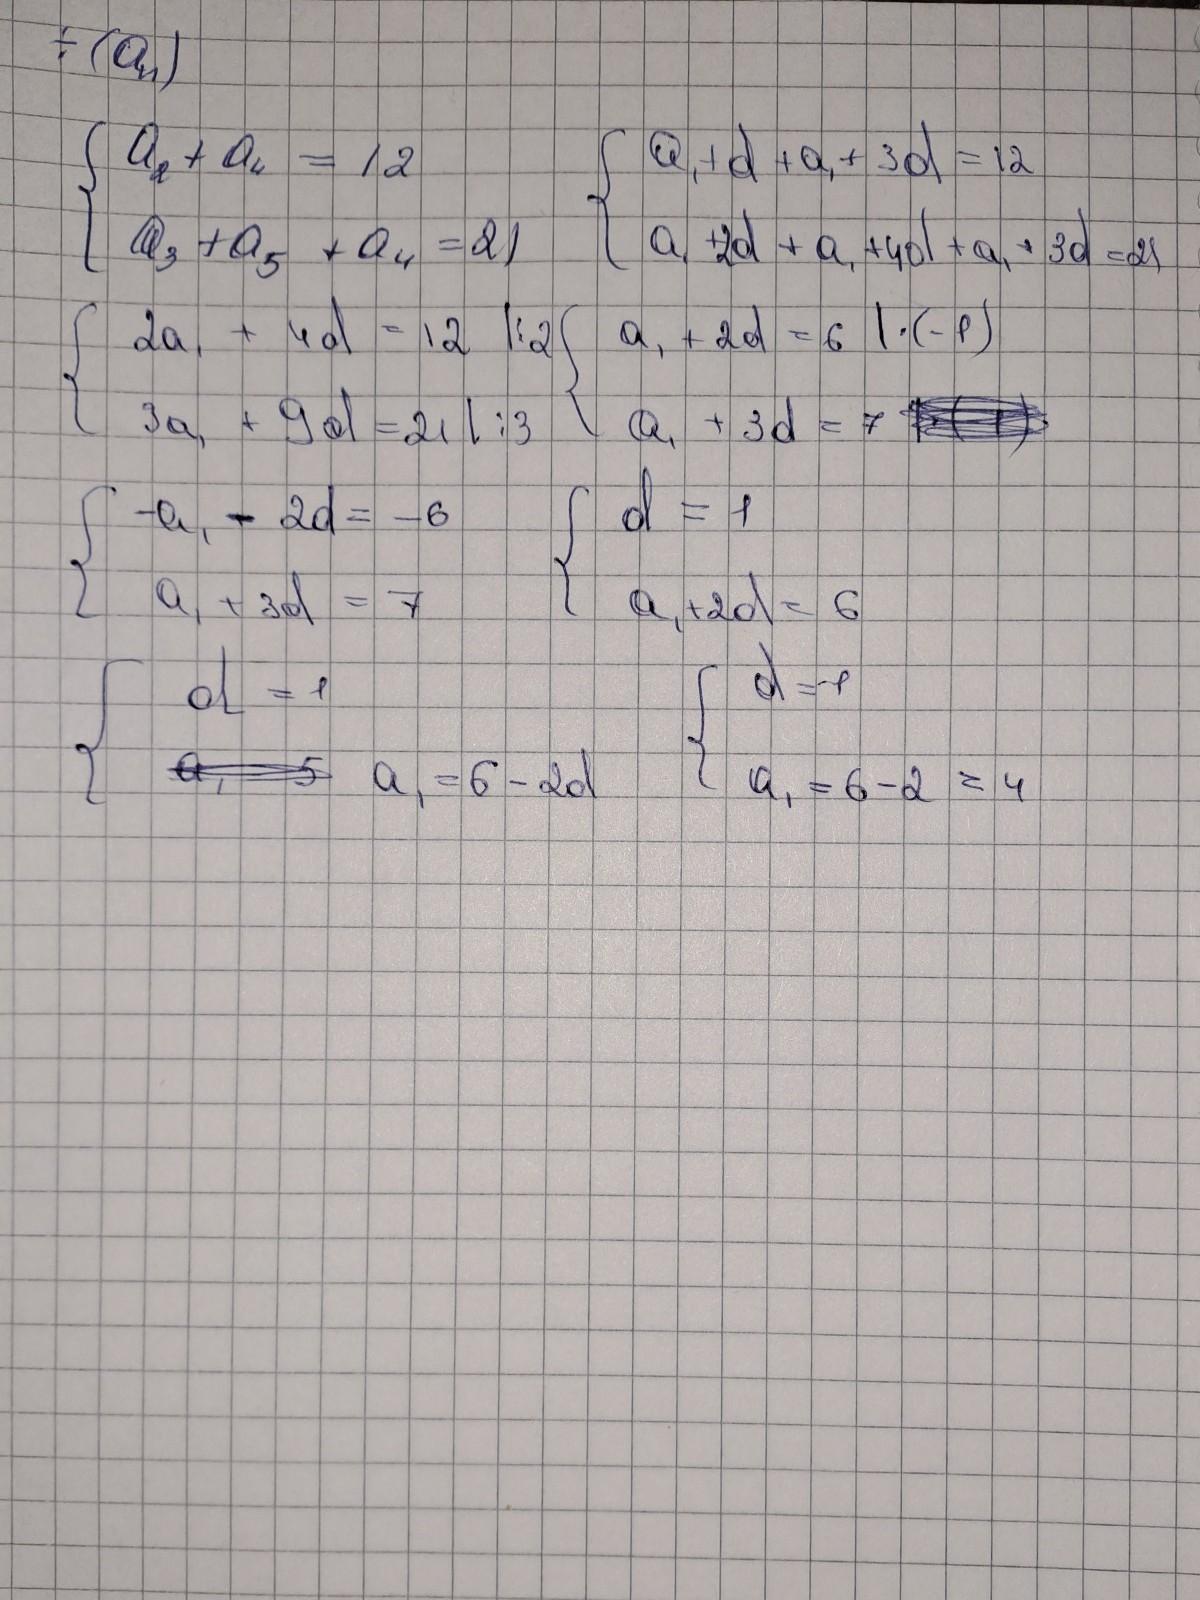 ÷ (aₙ)
a₂ + a₄ = 12
a₃ + a₅ + a₄ = 21
a₁ + d + a₁ + 3d = 12
a₁ + 2d + a₁ + 4d + a₁ + 3d = 21
2a₁ + 4d = 12 |:2
3a₁ + 9d = 21 | :3
a₁ + 2d = 6 | ·(-1)
a₁ + 3d = 7
-a₁ - 2d = -6
a₁ + 3d = 7
d = 1
a₁ + 2d = 6
d = 1
a₁ = 6 - 2d
d = 1
a₁ = 6 - 2 = 4